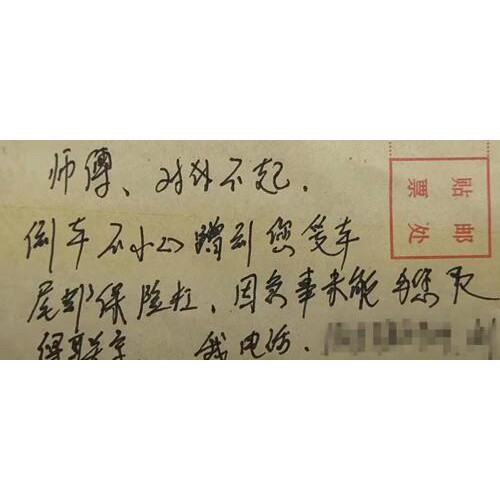 师傅、对不起.
倒车不小心蹭到您爱车
尾部保险杠,因急事未能与您及
我电话.
贴邮
票处